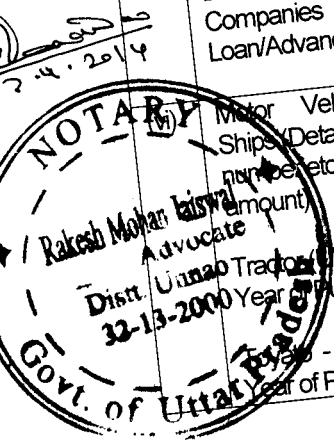 Companies
Loan/Advan
3.4.2014
NOTARY
(vi)
Motor Veh
Ships (Deta
amount)
Rakesh Mohan Jaiswal
Advocate
Distt. Unnao
32-13-2000
Tractor
Year
Year of P
Govt. of Uttar Pradesh